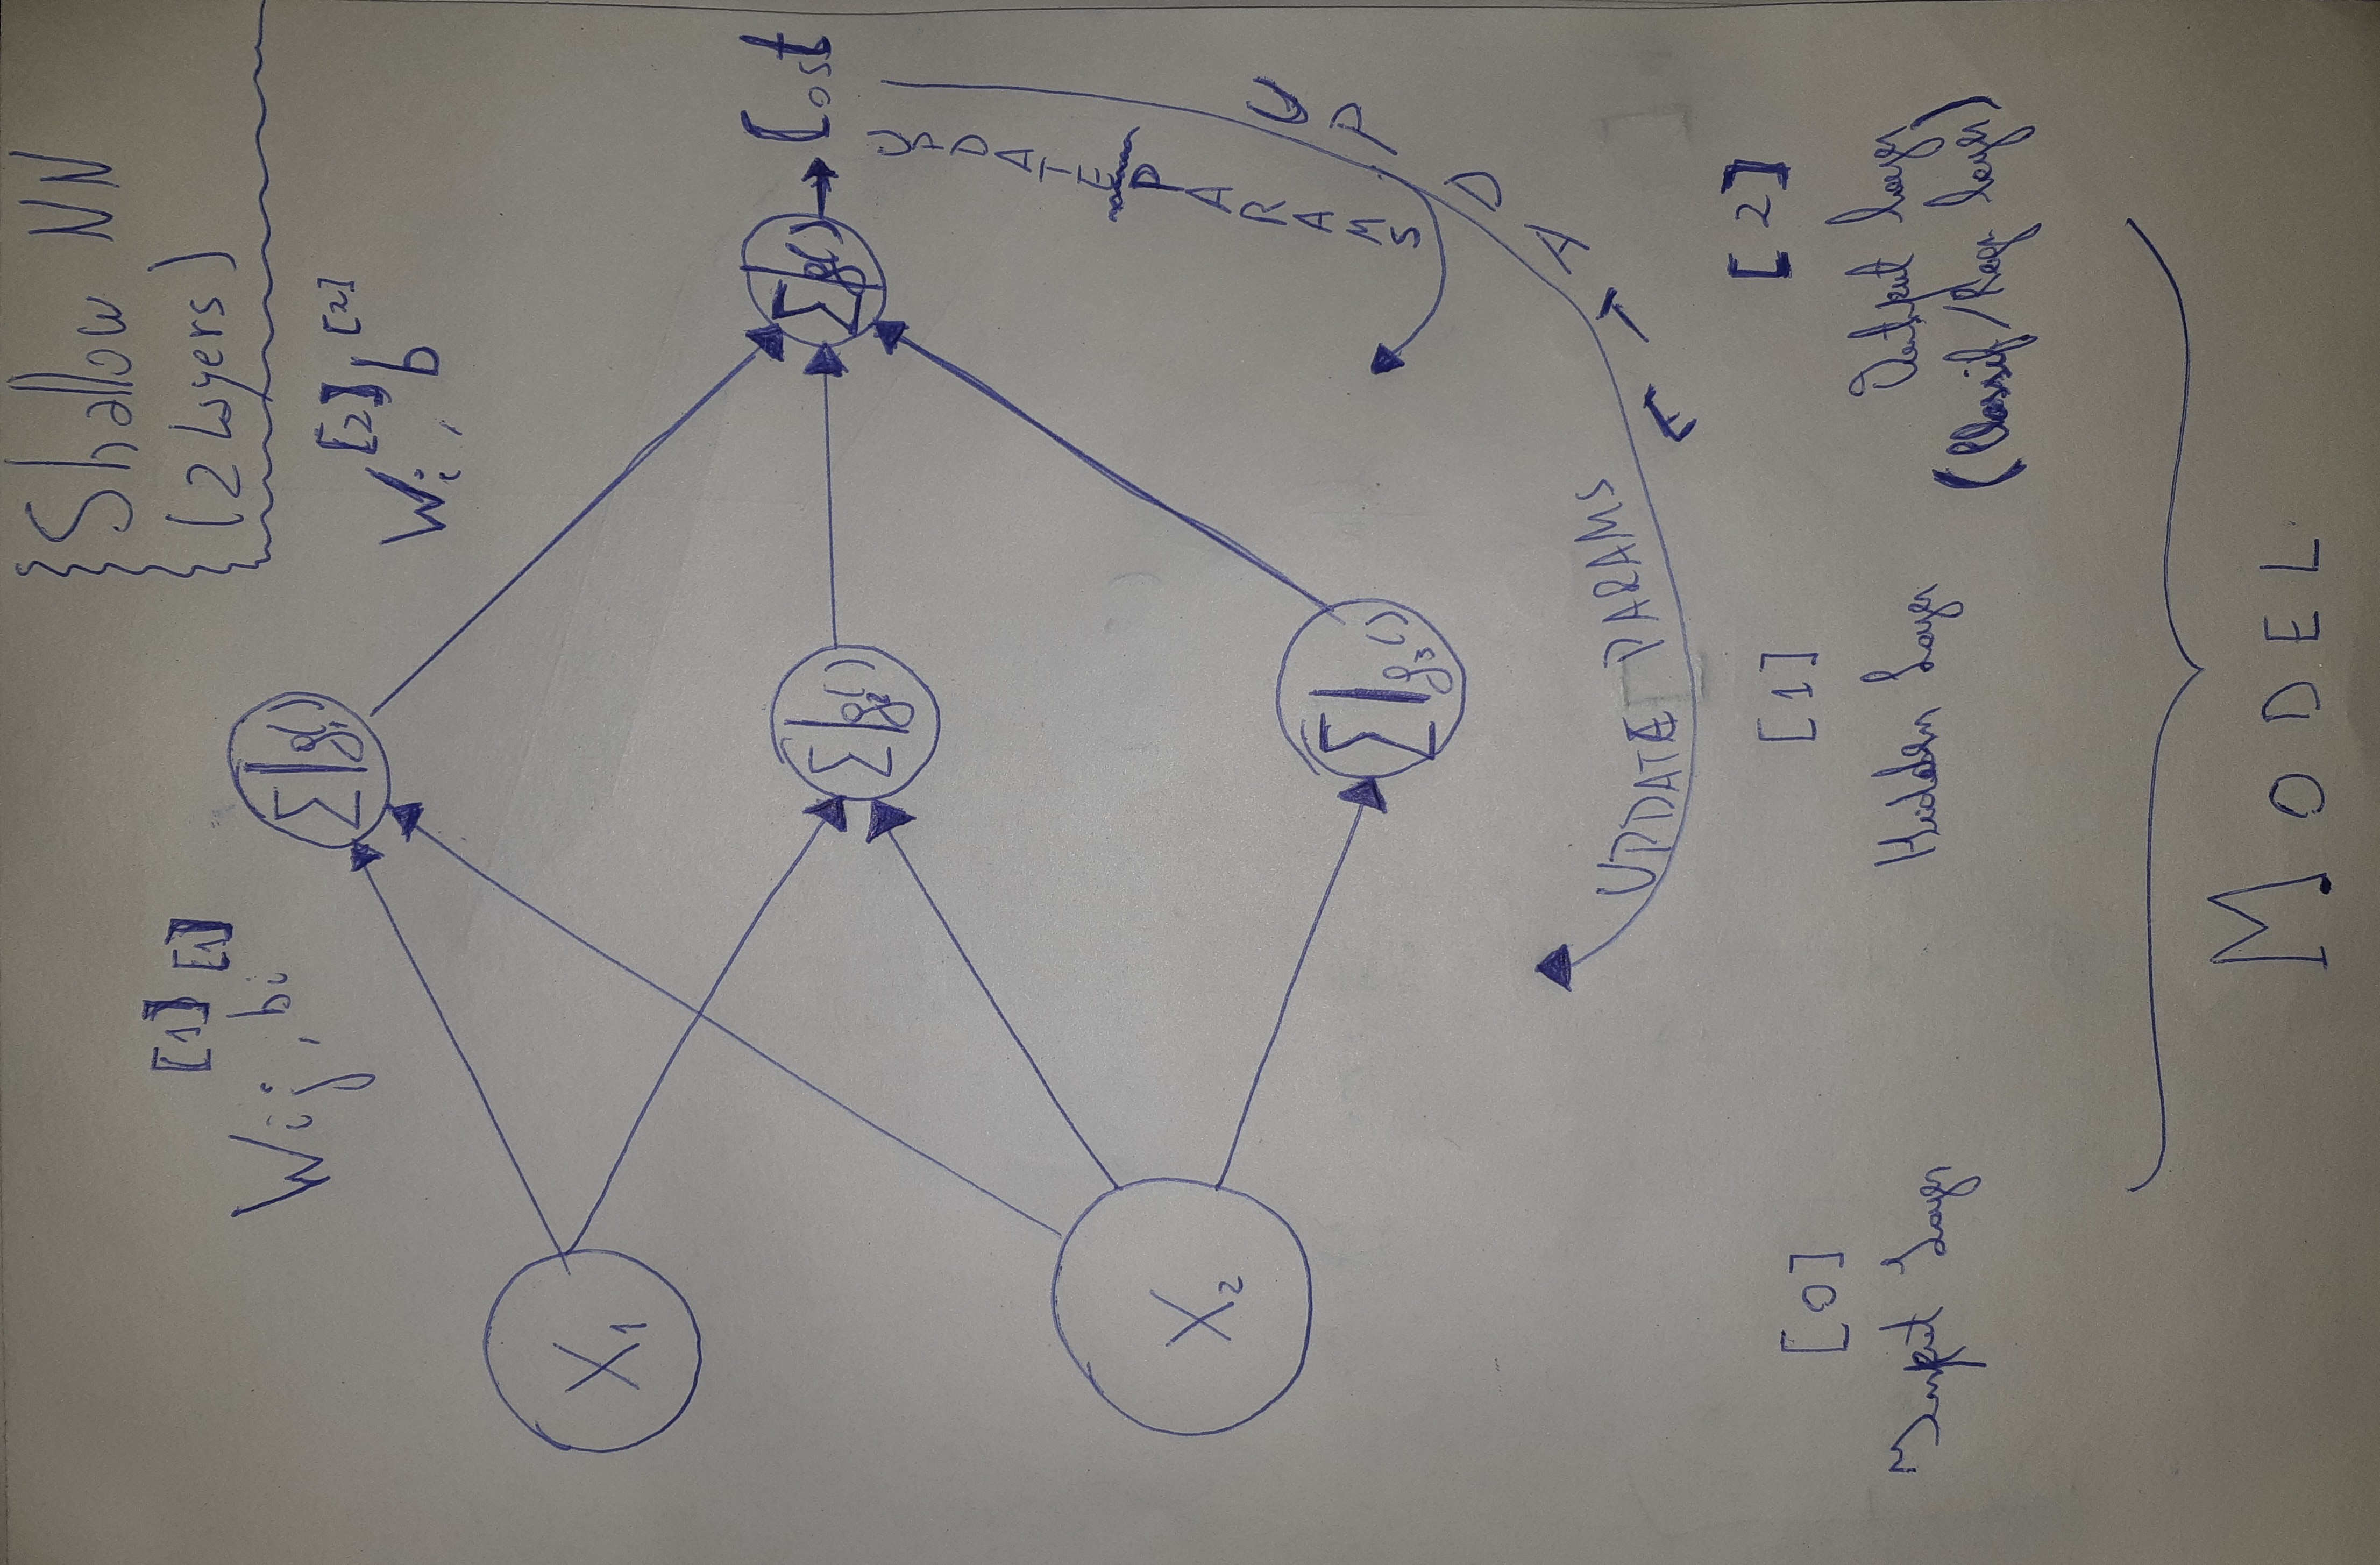 Shallow NN
(2 Layers)
Wij[1], bi[1]
Wi[2], b[2]
Σ|g1()
X1
Σ|g2()
Σ|g()
Cost
UPDATE PARAMS
X2
Σ|g3()
UPDATE
UPDATE PARAMS
[0]
[1]
[2]
Input Layer
Hidden Layer
Output layer
(Classif/Regr layer)
MODEL